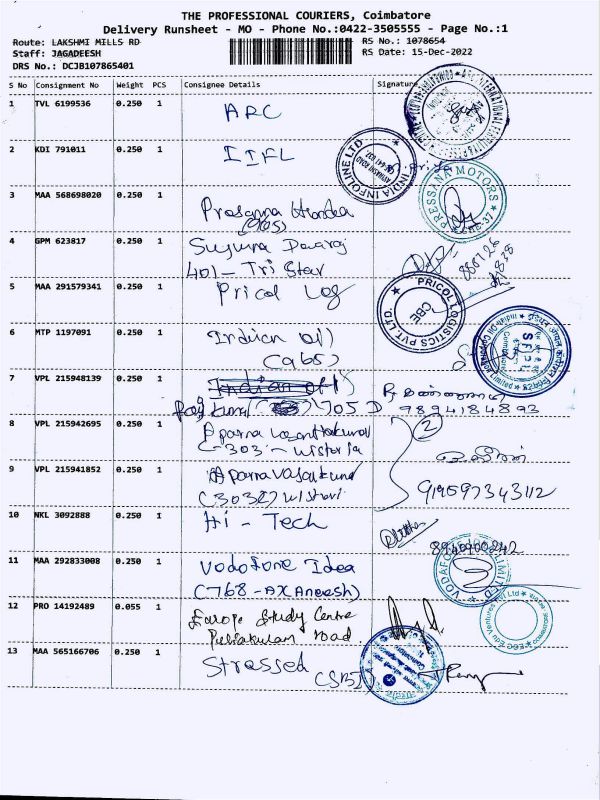 THE PROFESSIONAL COURIERS, Coimbatore
Delivery Runsheet - MO - Phone No.:0422-3505555 - Page No.:1
Route: LAKSHMI MILLS RD
RS No.: 1078654
Staff: JAGADEESH
RS Date: 15-Dec-2022
DRS No.: DCJB107865401
S No Consignment No Weight PCS Consignee Details Signature
1 TVL 6199536 0.250 1 ARC
2 KDI 791011 0.250 1 IIFL
INDIA INFOLINE LTD
3 MAA 568698020 0.250 1 Prasanna Honda
(905)
PRESSANA MOTORS
CBE-37
4 GPM 623817 0.250 1
401 - Tri Star
5 MAA 291579341 0.250 1 Pricol Log
PRICOL LOGISTICS PVT LTD
CBE
6 MTP 1197091 0.250 1 Indian oil
(965)
7 VPL 215948139 0.250 1 Indian oil
705 D 9894184893
8 VPL 215942695 0.250 1 Aparna Vasanthakumar 2
(-303 - Wistoria
9 VPL 215941852 0.250 1 Aparna Vasantkumar
919597343112
10 NKL 3092888 0.250 1 Hi - Tech
8940900242
11 MAA 292833008 0.250 1 Vodofone Idea
(768 - AX Aneesh)
12 PRO 14192489 0.055 1 Europe Study Centre
Puliakulam road
EGC Edu Ventures Pvt Ltd
13 MAA 565166706 0.250 1 Stressed
(SBI)